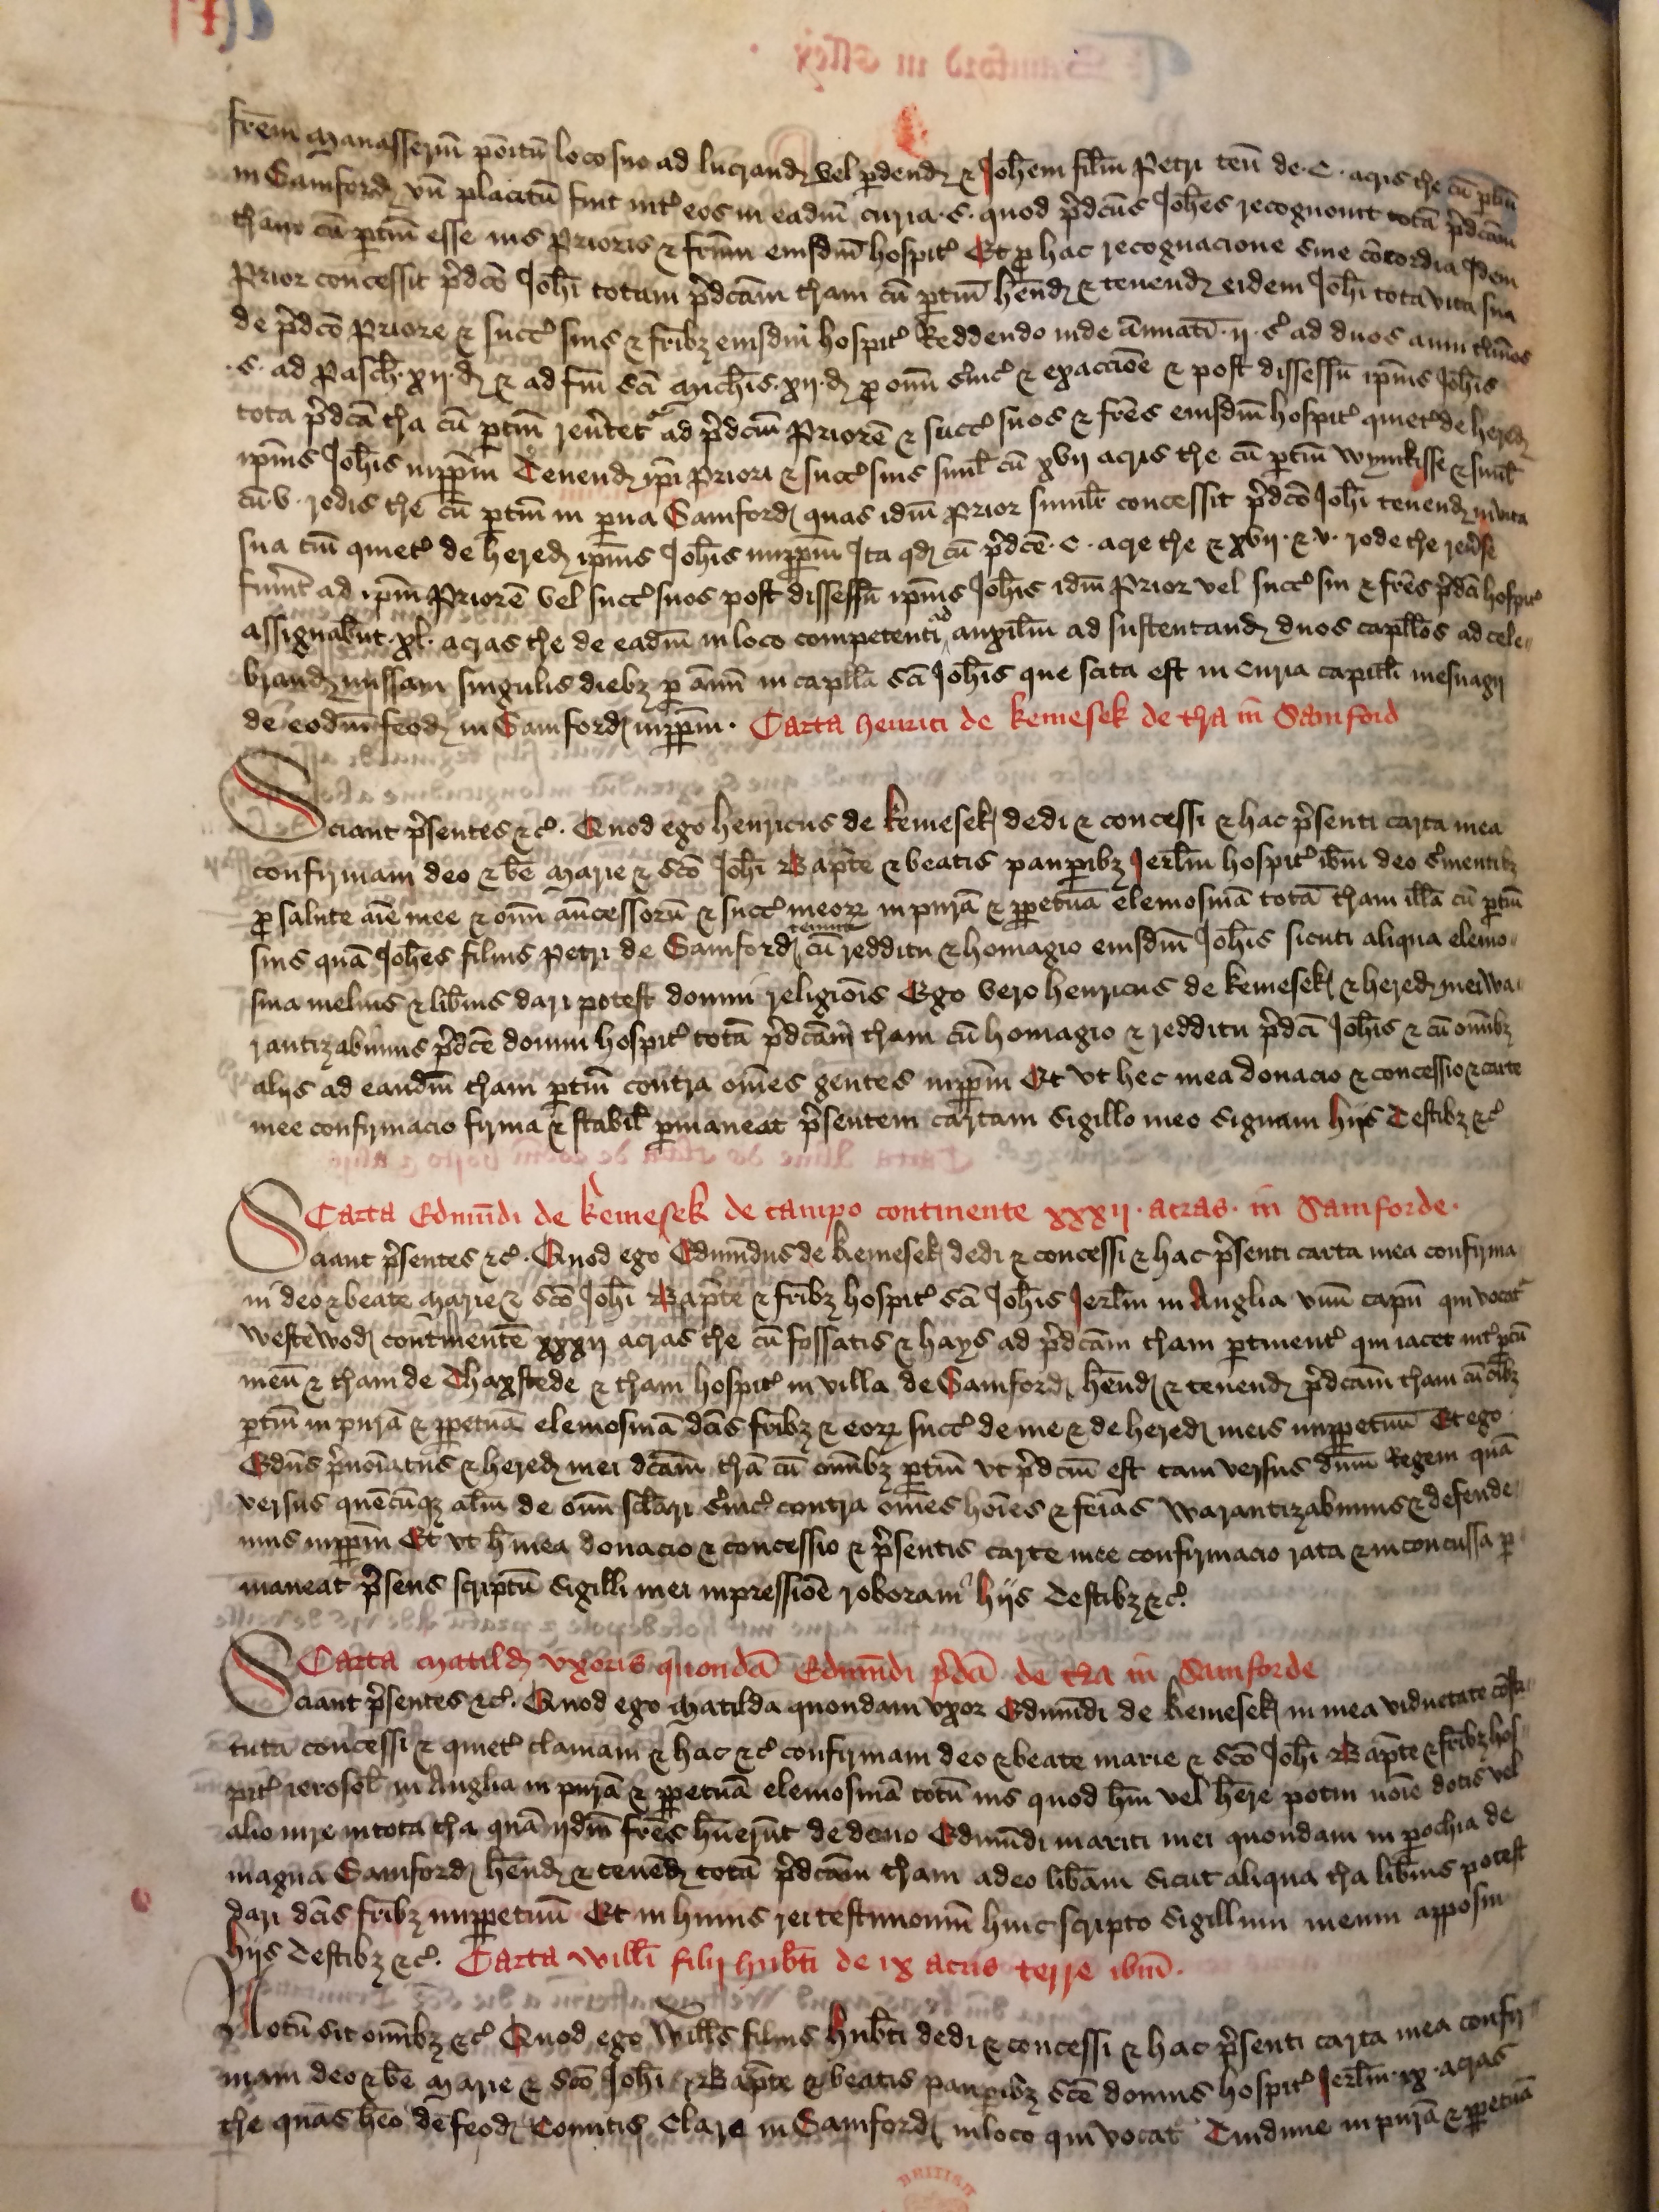 frēm Manasseriū pōitū loco suo ad lucrand vel pdend & Joħem filiū Petri teñ de .C. acris tħe cū ptiñ
in Samford vñ placitū fuit intᵉ eos in eadm̄ curia .S. quod p̄dcūs Joħes recognouit totā p̄dcām
tħam cū ptiñ esse ius Prioris & frm̄ eiusdm̄ hospitᵉ Et p hac recognacione siue cōcordia Idem
Prior concessit p̄dcō Joħi totam p̄dcām tħam cū ptiñ hēnd & tenend eidem Joħi tota vita sua
de p̄dcō Priore & succᵉ suis & frībz eiusdm̄ hospitᵉ Reddendo inde annuatī .ij. sᵉ ad duos anni tīmos
.S. ad Pascħ .xij. đ & ad fm̄ scī Micħis .xij. đ p om̄ s̄uicᵉ & exaccōe & post dissessū ip̄ius Joħis
tota p̄dcā tħa cū ptiñ reūtetᵉ ad p̄dcm̄ Priorē & succᵉ suos & frēs eiusdm̄ hospitᵉ quietᵉ de hered
ip̄ius Joħis inppm̄ Tenend ip̄i Priori & succᵉ suis simł cū xvij acris tħe cū ptiñ Wymkisse & simł
cū .v. rodis tħe cū ptiñ in pua Samford quas idm̄ Prior similr concessit p̄dcō Joħi tenend in vita
sua tm̄ quietᵉ de hered ip̄ius Joħis inppm̄ Ita qđ cū p̄dcē .C. acre tħe & xvij. & v. rode tħe reūse
fuīnt ad ip̄m Priorē vel succᵉ suos post dissessū ip̄ius Joħis idm̄ Prior vel succᵉ sui & frēs p̄dcī hospitᵉ
assignabūt .xl. acras tħe de eadm̄ in loco competenti ad auxiliū ad sustentand duos capłłos ad cele-
brand missam singulis diebz p annū in capłła scī Joħis que scita est in Curia capitłi mesuagij
de eodm̄ feod in Samford inppm̄. Carta Henrici de Kemesek de tħa in Samford
Sciant p̄sentes &cᵉ. Quod ego Henricus de Kemesek dedi & concessi & hac p̄senti carta mea
confirmam deo & bē Marie & scō Joħi Bapt̄e & beatis paupibz Jerłm hospitᵉ ibm̄ deo s̄uientibz
p salute aīe mee & om̄ añcessorū & succᵉ meorꝝ in purā & ppetuā elemosinā totā tħam illā cū ptiñ
suis quā Joħes filius Petri de Samford tenuit cū redditu & homagio eiusdm̄ Joħis sicuti aliqua elemo-
sina melius & libīus dari potest domui religiōis Ego vero Henricus de Kemesek & hered mei wa-
rantizabimus p̄dcē domui hospitᵉ totā p̄dcām tħam cū homagio & redditu p̄dcī Joħis & cū om̄ibz
alijs ad eandm̄ tħam ptiñ contra om̄es gentes inppm̄ Et vt hec mea donacio & concessio & carte
mee confirmacio firma & stabił pmaneat p̄sentem cartam sigillo meo signam hijs Testibz &cᵉ
Carta Edmūdi de Kemesek de campo continente xxxij. acras. in Samforde.
Sciant p̄sentes &cᵉ. Quod ego Edmūdus de Kemesek dedi & concessi & hac p̄senti carta mea confirma
ui deo & beate Marie & scō Joħi Bapt̄e & frībz hospitᵉ scī Joħis Jerłm in Anglia vnū capū qui vocatᵉ
Westewod contīnentē xxxij acras tħe cū fossatis & hays ad p̄dcām tħam ptinentᵉ qui iacet intᵉ ptū
meū & tħam de Thaxstede & tħam hospitᵉ in villa de Samford hēnd & tenend p̄dcām tħam cū oībz
ptiñ in purā & ppetuā elemosinā dcīs frībz & eorꝝ succᵉ de me & de hered meis inppetuū Et ego
Edm̄s p̄noīatus & hered mei dcām tħā cū om̄ibz ptiñ vt p̄dcm̄ est tam versus dn̄m Regem quā
versus quēcūqz alm̄ de om̄i sclāri s̄uicᵉ contra om̄es hoīes & feīas Warantizabimus & defende-
mus inppm̄ Et vt ħ mea donacio & concessio & p̄sentis carte mee confirmacio rata & inconcussa p-
maneat p̄sens scriptū sigilli mei inpressiōe roboram hijs Testibz &cᵉ.
Carta Matild vxoris quondā Edmūdi p̄dcī de tħa in Samforde
Sciant p̄sentes &cᵉ. Quod ego Matilda quondam vxor Edmūdi de Kemesek in mea viduetate cōsti-
tuta concessi & quietᵉ clamam & hac &cᵉ confirmam deo & beate Marie & scō Joħi Bapt̄e & frībz hos-
pitᵉ ierosoł in Anglia in purā & ppetuā elemosinā totū ius quod ħui vel ħere potui noīe dotis vel
alio iure in tota tħa quā ijdm̄ frēs ħuerūt de dono Edmūdi mariti mei quondam in pochia de
magna Samford hēnd & tenēd totā p̄dcām tħam adeo libām sicut aliqua tħa libīus potest
dari dcīs frībz inppetuū Et in huius rei testimoniū huic scripto sigillum meum apposui
hijs Testibz &cᵉ. Carta Willī filij Hubti de ix acris terre ibm̄.
Notū sit om̄ibz &cᵉ Quod ego Willūs filius Hubti dedi & concessi & hac p̄senti carta mea confir-
mam deo & bē Marie & scō Joħi Bapt̄e & beatis paupibz scē domus hospitᵉ Jerłm .ix. acras
tħe quas ħeo de feod Comitis Clare in Samford in loco qui vocatᵉ Tundune in purā & ppetuā
BRITISH